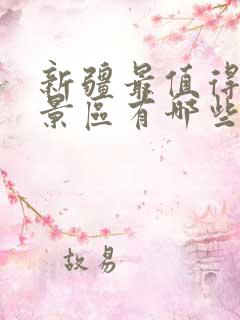 新疆最值得
景區有哪些
故易